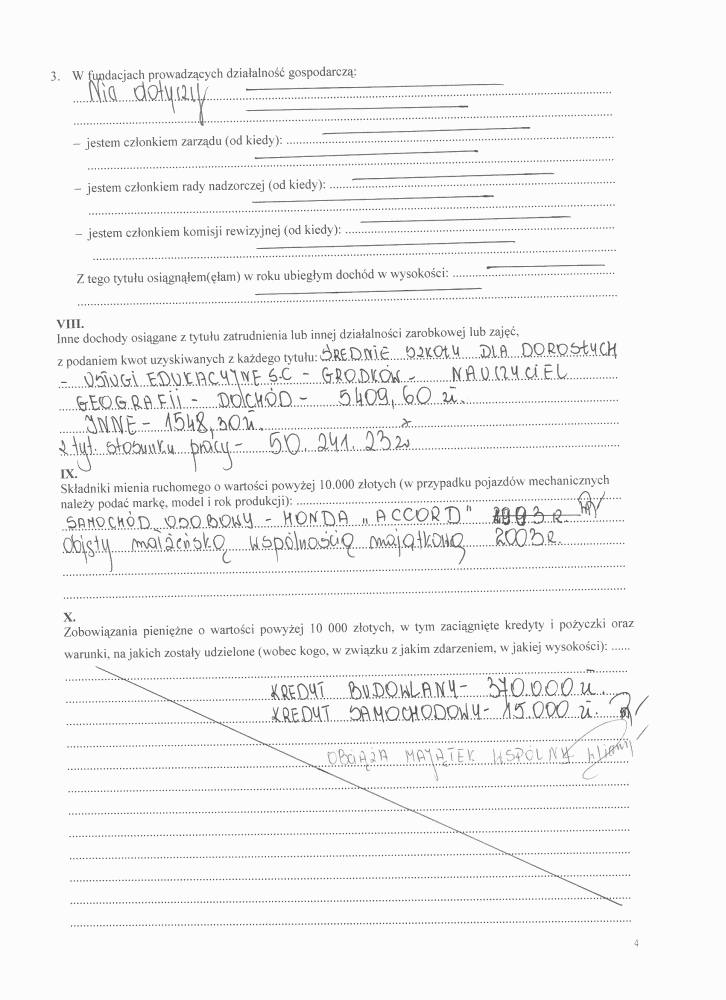 3. W fundacjach prowadzących działalność gospodarczą:
Nie dotyczy
– jestem członkiem zarządu (od kiedy):
– jestem członkiem rady nadzorczej (od kiedy):
– jestem członkiem komisji rewizyjnej (od kiedy):
Z tego tytułu osiągnąłem(ęłam) w roku ubiegłym dochód w wysokości:
VIII.
Inne dochody osiągane z tytułu zatrudnienia lub innej działalności zarobkowej lub zajęć,
z podaniem kwot uzyskiwanych z każdego tytułu: ŚREDNIE SZKOŁY DLA DOROSŁYCH
- USŁUGI EDUKACYJNE S.C - GRODKÓW - NAUCZYCIEL
GEOGRAFII - DOCHÓD - 5409,60 zł.
INNE - 1548,30 zł.
z tyt. stosunku pracy - 50.241.23 zł
IX.
Składniki mienia ruchomego o wartości powyżej 10.000 złotych (w przypadku pojazdów mechanicznych
należy podać markę, model i rok produkcji):
SAMOCHÓD OSOBOWY - HONDA „ACCORD" 1993 r.
objęty małżeńską wspólnością majątkową 2003 r.
X.
Zobowiązania pieniężne o wartości powyżej 10 000 złotych, w tym zaciągnięte kredyty i pożyczki oraz
warunki, na jakich zostały udzielone (wobec kogo, w związku z jakim zdarzeniem, w jakiej wysokości):
KREDYT BUDOWLANY - 370.000 zł.
KREDYT SAMOCHODOWY - 15.000 zł.
OBCIĄŻA MAJĄTEK WSPÓLNY
4